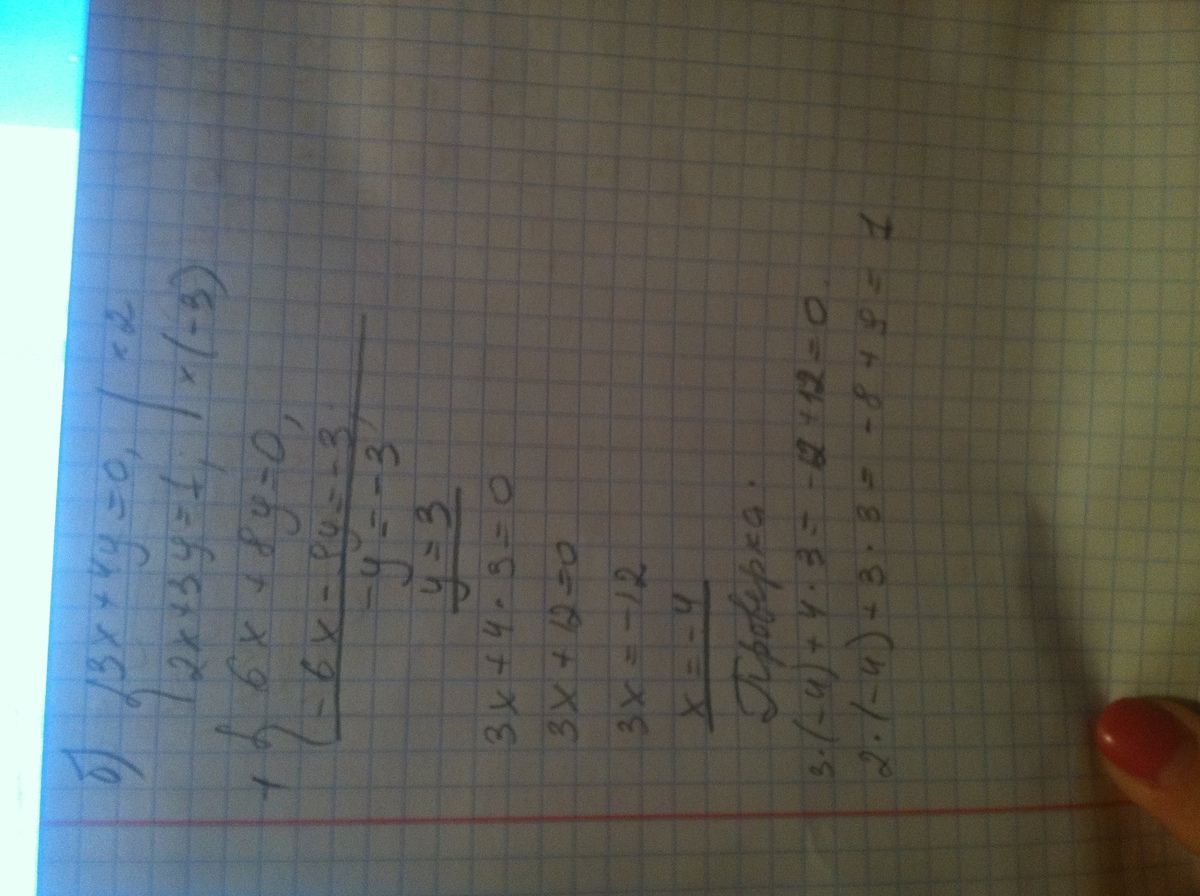 б) {3x + 4y = 0, | × 2
{2x + 3y = 1, | × (-3)
+ { 6x + 8y = 0,
{-6x - 9y = -3
-y = -3,
y = 3
3x + 4 · 3 = 0
3x + 12 = 0
3x = -12
x = -4
Проверка:
3·(-4) + 4 · 3 = -12 + 12 = 0.
2·(-4) + 3 · 3 = -8 + 9 = 1